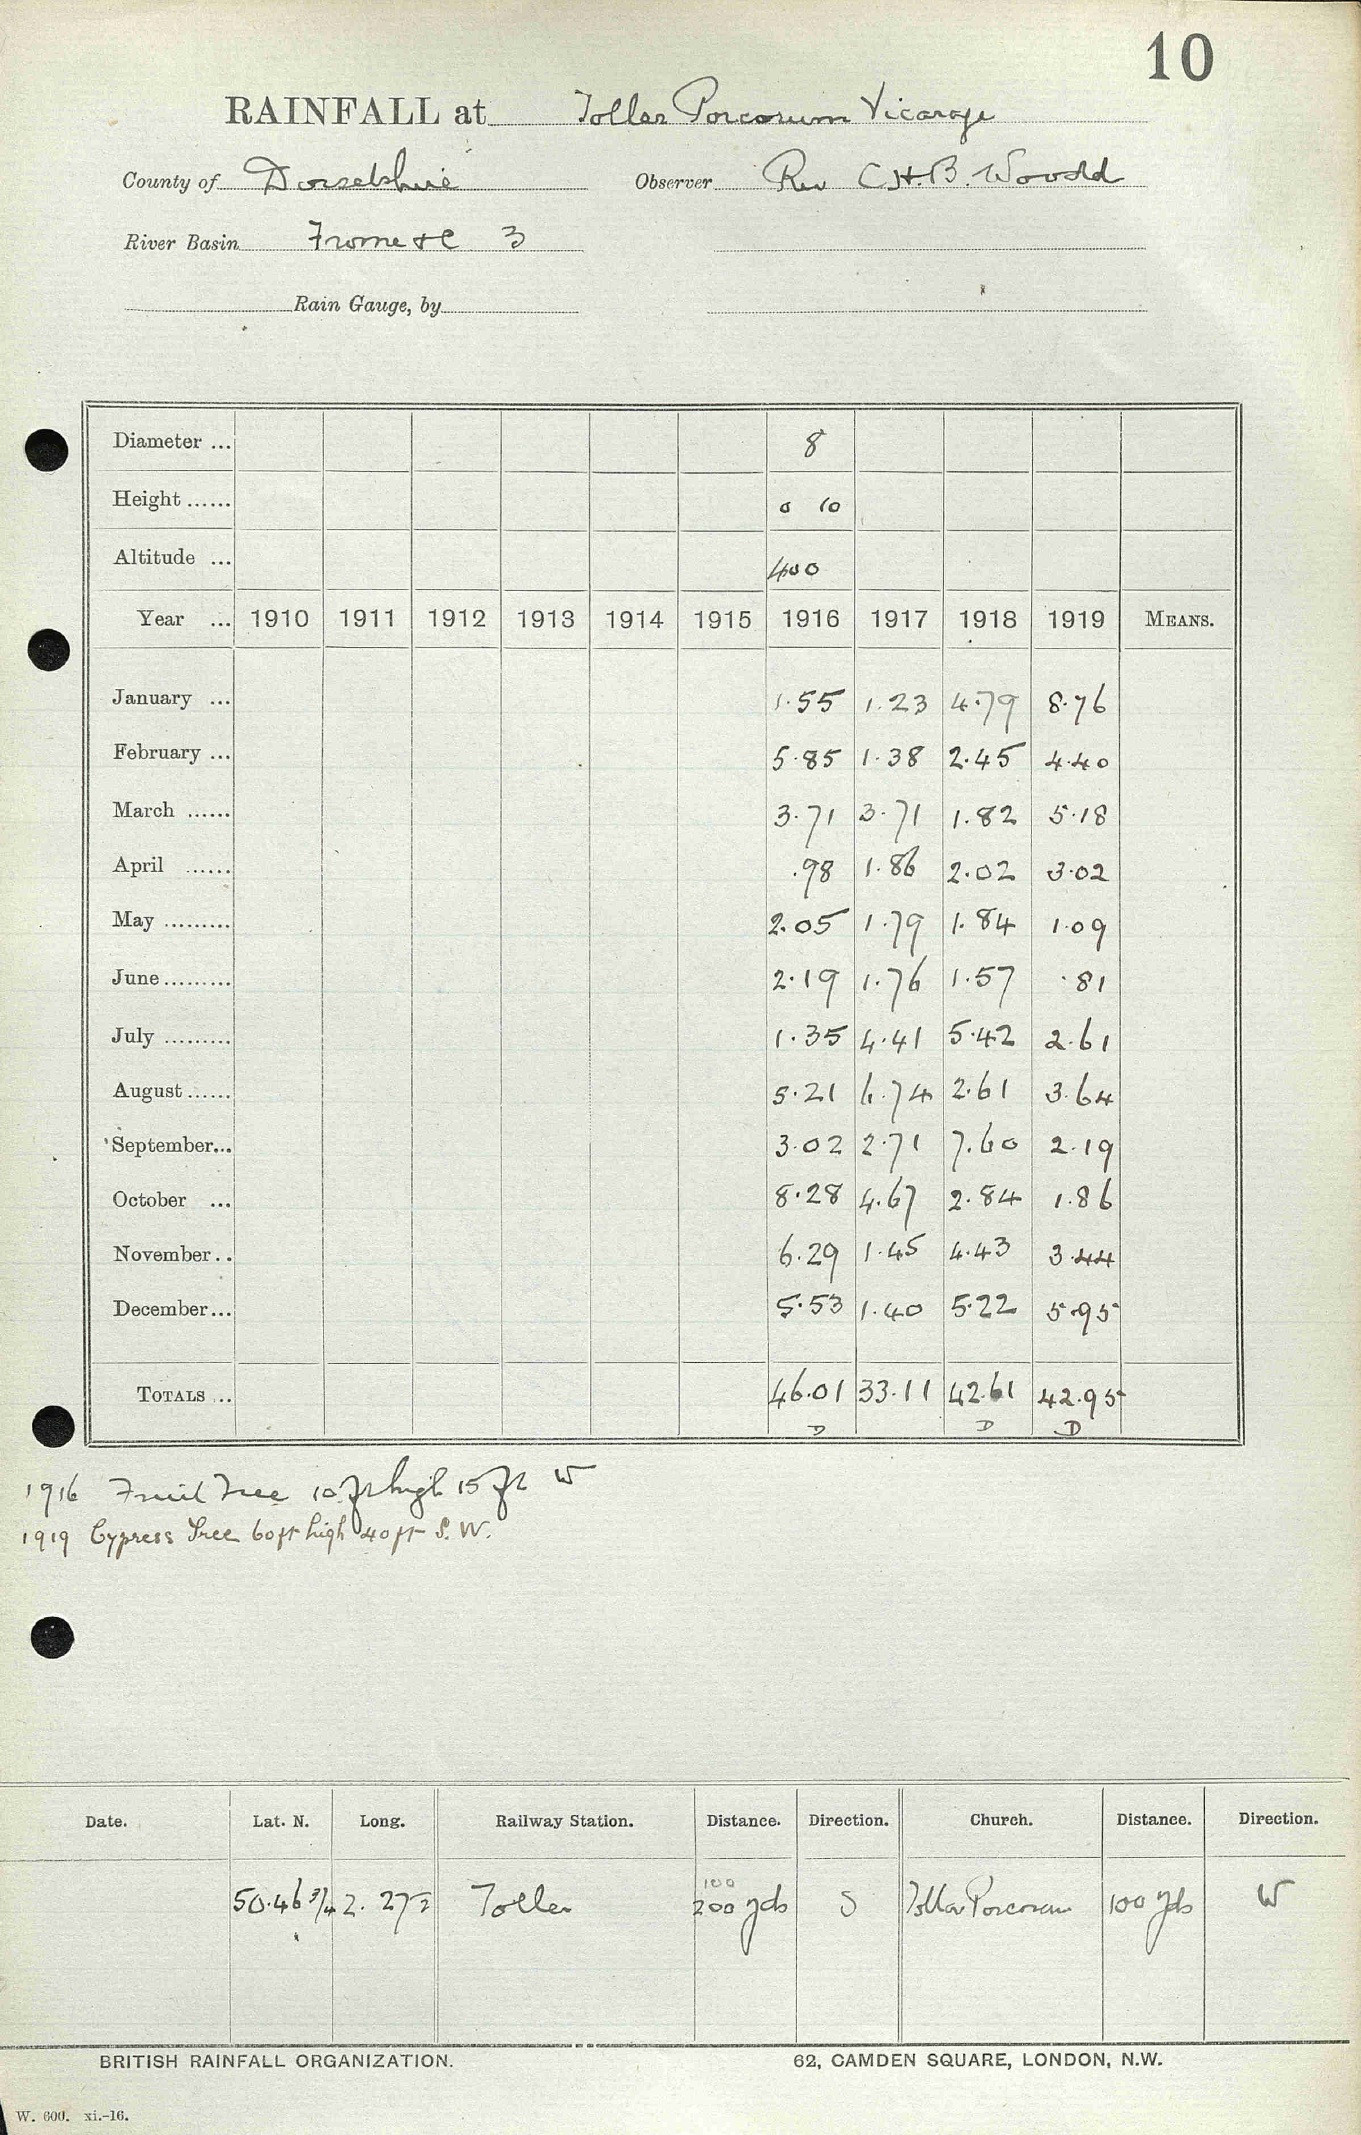 10
RAINFALL at Toller Porcorum Vicarage
County of Dorsetshire Observer Rev C.H.B. Woodd
River Basin Frome &c 3
Rain Gauge, by
Diameter ... 8
Height ...... 0 10
Altitude ... 400
Year ... 1910 1911 1912 1913 1914 1915 1916 1917 1918 1919 MEANS.
January ... 1.55 1.23 4.79 8.76
February ... 5.85 1.38 2.45 4.40
March ...... 3.71 3.71 1.82 5.18
April ...... .98 1.86 2.02 3.02
May ......... 2.05 1.79 1.84 1.09
June ......... 2.19 1.76 1.57 .81
July ......... 1.35 4.41 5.42 2.61
August ...... 5.21 6.74 2.61 3.64
September... 3.02 2.71 7.60 2.19
October ... 8.28 4.67 2.84 1.86
November .. 6.29 1.45 4.43 3.44
December... 5.53 1.40 5.22 5.95
TOTALS ... 46.01 33.11 42.61 42.95
D D D
1916 Fruit Tree 10 ft high 15 ft W
1919 Cypress Tree 60 ft high 40 ft S.W.
Date. Lat. N. Long. Railway Station. Distance. Direction. Church. Distance. Direction.
100
50.46 3/4 2. 27 Toller 200 yds S Toller Porcorum 100 yds W
BRITISH RAINFALL ORGANIZATION. 62, CAMDEN SQUARE, LONDON, N.W.
W. 600. xi.-16.